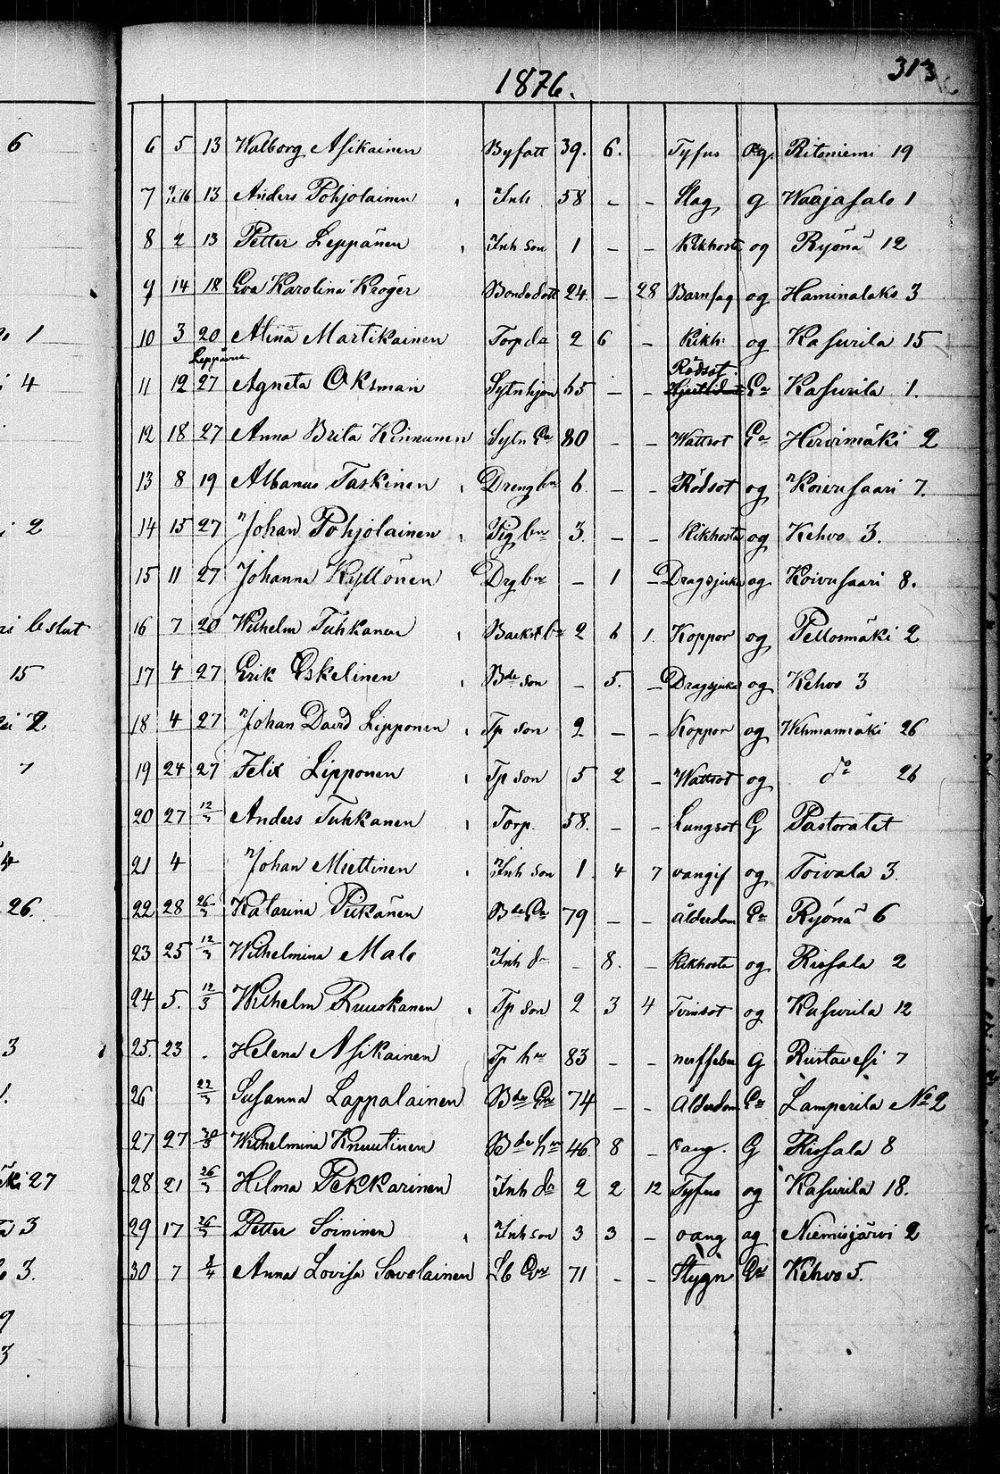 313
1876.
6 5 13 Walborg Asikainen Byfatt 39. 6. Tyfus og. Ritoniemi 19
7 13 Anders Pohjolainen Inh 58 - - Slag g Waajasalo 1
8 2 13 Petter Leppänen Inh son 1 - - Kikhosta og Ryönä 12
9 14 18 Eva Karolina Kröger Bondedott 24 - 28 Barnsäg og Haminalaks 3
10 3 20 Alina Martikainen Torp da 2 6 - Kikh. og Kasurila 15
Leppänen Rödsot.
11 12 27 Agneta Oksman Sytnhjon 65 - - Ea Kasurila 1.
12 18 27 Anna Brita Kinnunen Sytn Ea 80 - - Wattsot Ea Hirvimäki 2
13 8 19 Albanus Taskinen Dreng bn 6 - - Rödsot og Koivusaari 7.
14 15 27 Johan Pohjolainen Pig bn 3. - - Kikhosta og Kehvo 3.
15 11 27 Johanna Kyllönen Drg bn - 1 - Dragsjuka og Koivusaari 8.
16 7 20 Wilhelm Tuhkanen Backst b 2 6 1. Koppor og Peltosmäki 2
17 4 27 Erik Eskelinen Bde son - 5. - Dragsjuka og Kehvo 3
18 4 27 Johan David Lipponen Tp son 2 - - Koppor og Wehmasmäki 26
19 24 27 Felix Lipponen Tp son 5 2 - Wattsot og do 26
20 27 12/3 Anders Tuhkanen Torp. 58. - - Lungsot G Pastoratet
21 4 Johan Miettinen Inh son 1. 4 7 oangif og Toivala 3.
22 28 26/3 Katarina Pitkänen Bde Ea 79 - - ålderdom Ea Ryönä 6
23 25 12/3 Wilhelmina Malo Inh dr - 8. - Kikhosta og Rissala 2
24 5. 12/3 Wilhelm Ruuskanen Tp son 2 3 4 Tvinsot og Kasurila 12
25. 23 . Helena Asikainen Tp hu 83 - - g Rustavesi 7
26 22/3 Susanna Lappalainen Bde Ea 74 - - Ålderdom Ea Lamperila No 2
27 27 Wilhelmina Knuutinen Bde hu 46 8 - oang. G Rissala 8
28 21 26/3 Hilma Pekkarinen Inh dr 2 2 12 Tyfus og Kasurila 18.
29 17 26/3 Petter Soininen Inh son 3 3 - oang og Niemisjärvi 2
30 7 Anna Lovisa Savolainen 71 - - Stygn Ea Kehvo 5.
6
1
4
2
beslut
15
2
7
4
26.
3
1.
27
3
3.
9
3